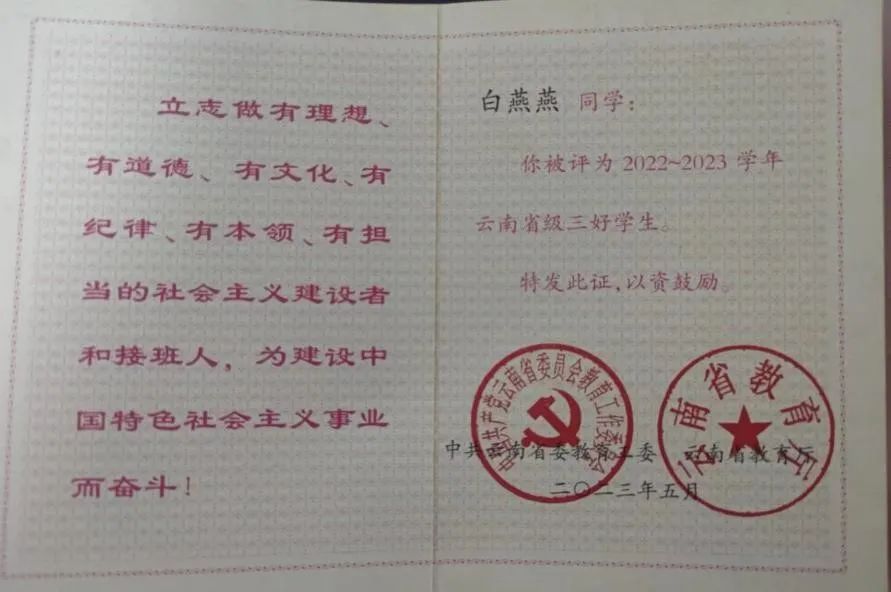 立志做有理想、
有道德、有文化、有
纪律、有本领、有担
当的社会主义建设者
和接班人，为建设中
国特色社会主义事业
而奋斗！
白燕燕 同学：
你被评为 2022~2023 学年
云南省级三好学生。
特发此证，以资鼓励。
中国共产党云南省委员会教育工作委员会
云南省教育厅
中共云南省委教育工委 云南省教育厅
二〇二三年五月